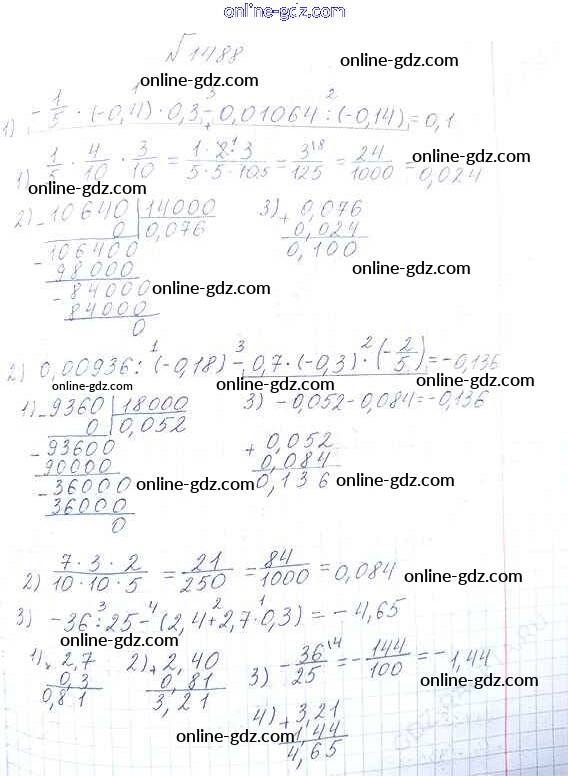 online-gdz.com
№1488
online-gdz.com
1) -1/5 · (-0,4) · 0,3 - 0,01064 : (-0,14) = 0,1
online-gdz.com
1) 1/5 · 4/10 · 3/10 = 1·2·3/5·5·10 = 3/125 = 24/1000 = 0,024
online-gdz.com
2) 10640 | 14000 3) + 0,076
0 | 0,076 0,024
106400 0,100
98000 online-gdz.com
84000 online-gdz.com
84000
0
2) 0,00936 : (-0,18) - 0,7 · (-0,3) · (-2/5) = -0,136
online-gdz.com online-gdz.com
1) 9360 | 18000 3) -0,052 - 0,084 = -0,136
0 | 0,052
93600 + 0,052
90000 0,084
36000 online-gdz.com 0,136 online-gdz.com
36000
0
2) 7·3·2/10·10·5 = 21/250 = 84/1000 = 0,084
online-gdz.com
3) -36 : 25 - (2,4 + 2,7 · 0,3) = -4,65
online-gdz.com
1) × 2,7 2) + 2,40 3) -36/25 = -144/100 = -1,44
0,3 0,81
0,81 3,21
online-gdz.com
4) + 3,21
1,44
4,65
online-gdz.com
online-gdz.com